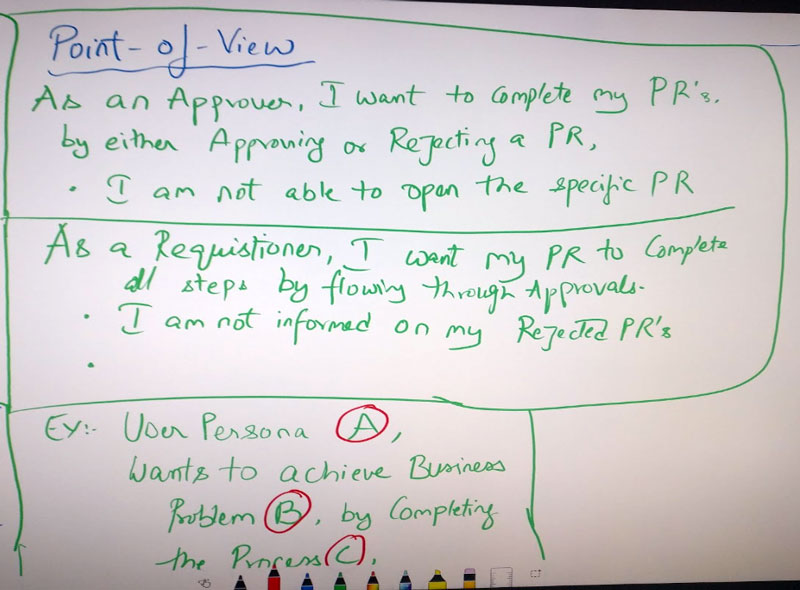 Point-of-View
As an Approver, I want to complete my PR's.
by either Approving or Rejecting a PR,
• I am not able to open the specific PR
As a Requistioner, I want my PR to Complete
all steps by flowing through Approvals.
• I am not informed on my Rejected PR's
•
Ex:- User Persona A,
Wants to achieve Business
Problem B, by Completing
the Process C.